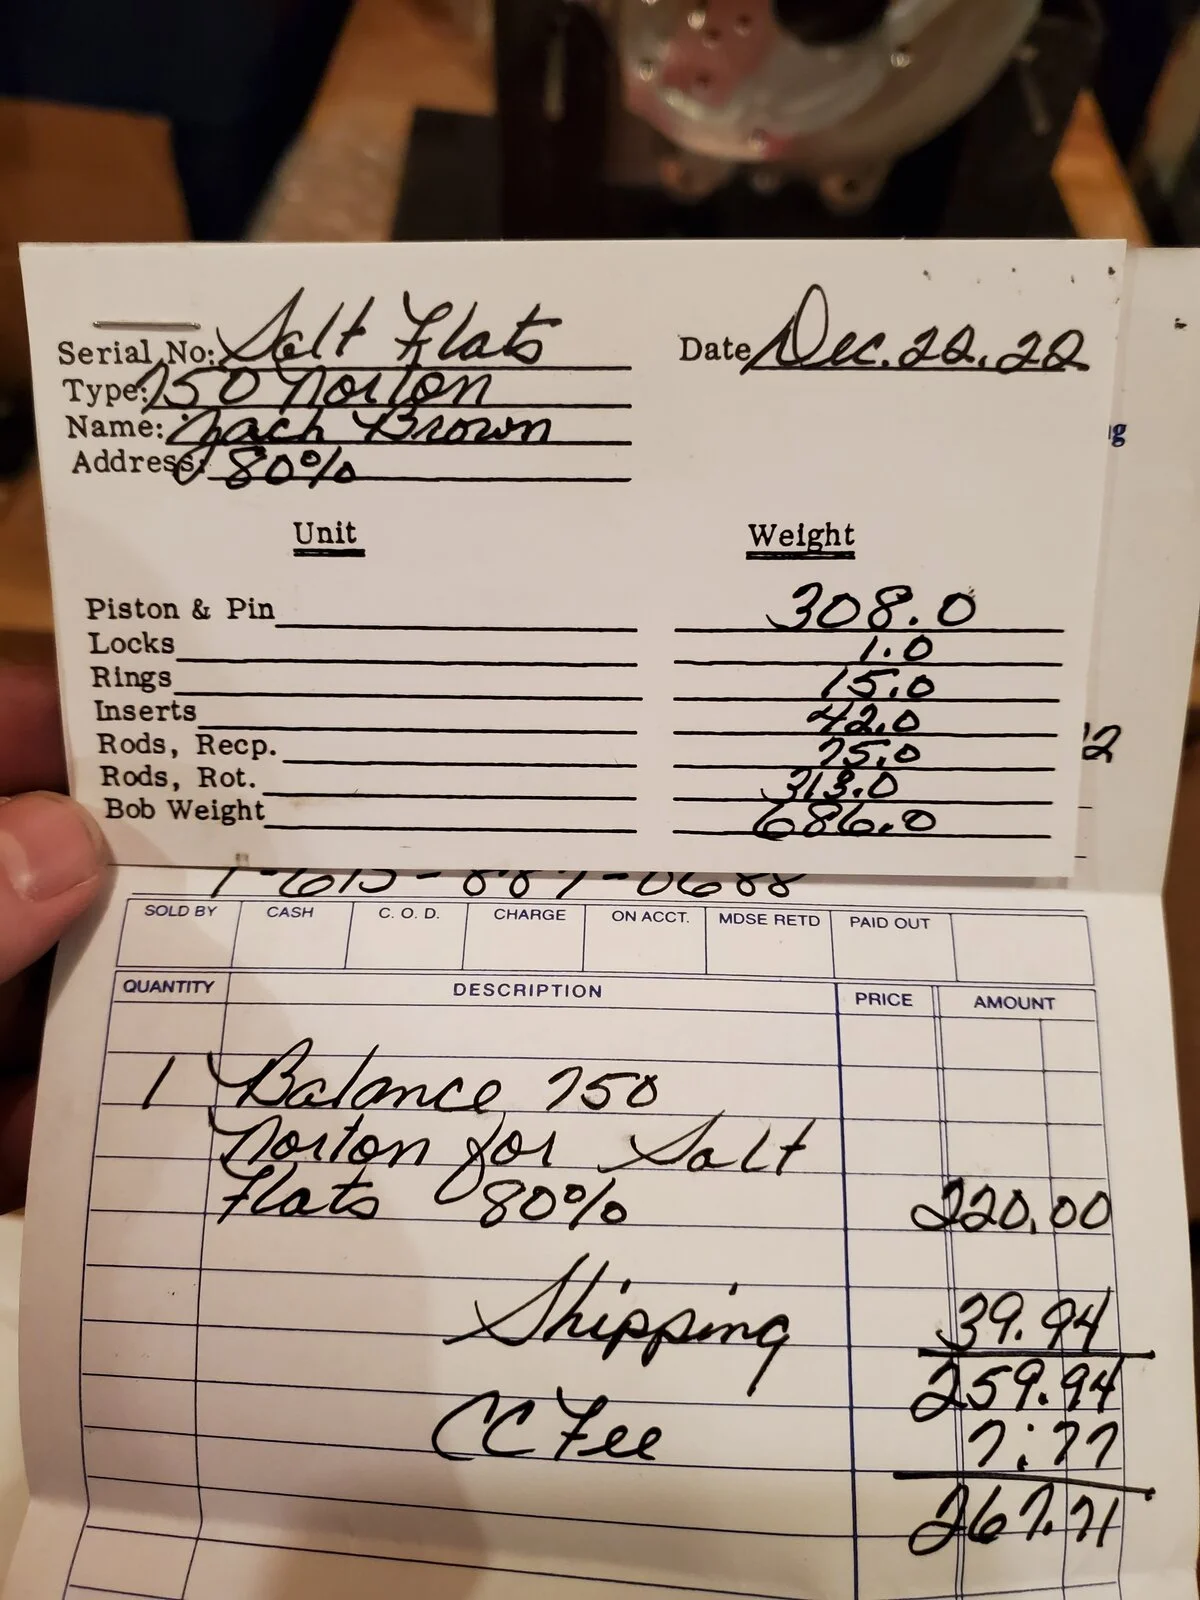 Serial No: Salt Flats Date Dec. 22. 22
Type: 750 Norton
Name: Zach Brown
Address: 80%
Unit Weight
Piston & Pin 308.0
Locks 1.0
Rings 15.0
Inserts 42.0
Rods, Recp. 75.0
Rods, Rot. 313.0
Bob Weight 686.0
SOLD BY CASH C. O. D. CHARGE ON ACCT. MDSE RETD PAID OUT
QUANTITY DESCRIPTION PRICE AMOUNT
1 Balance 750
Norton for Salt
Flats 80% 220.00
Shipping 39.94
259.94
CC Fee 7.77
267.71